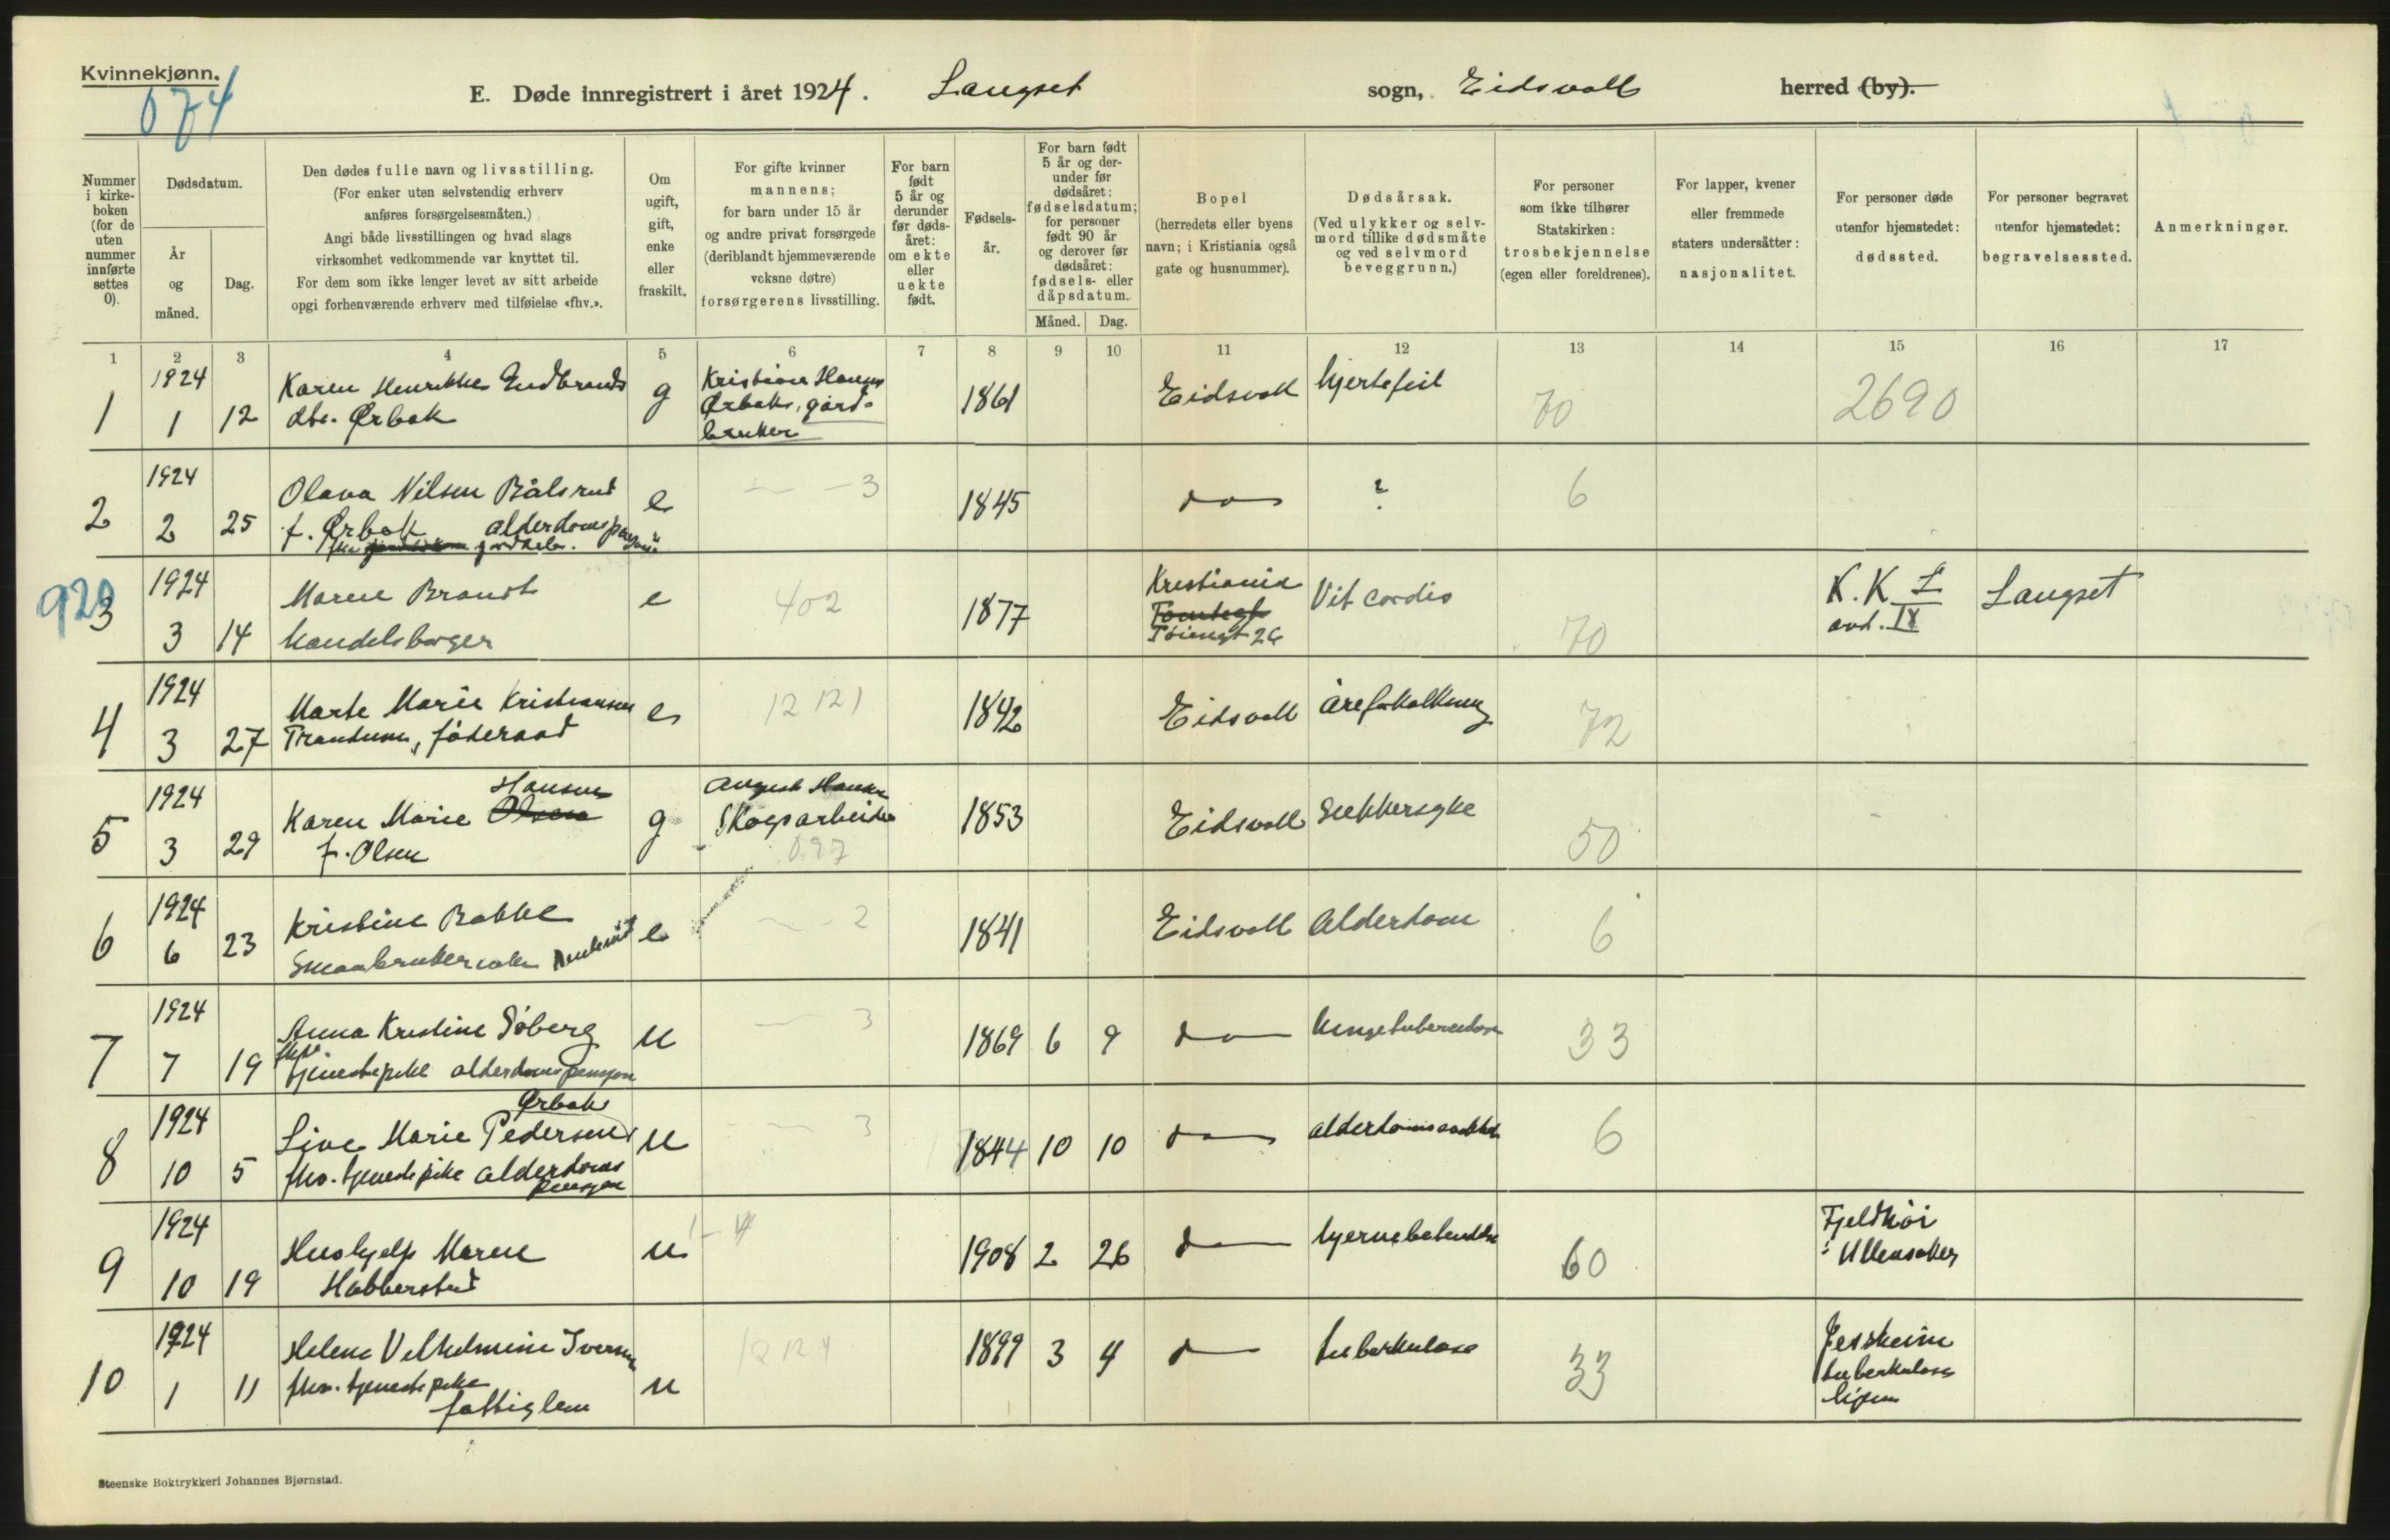 Kvinnekjønn.
074
E. Døde innregistrert i året 1924. Langset sogn, Eidsvoll herred (by).
Nummer i kirkeboken (for de uten nummer innførte settes 0).
Dødsdatum.
År og måned.
Dag.
Den dødes fulle navn og livsstilling.
(For enker uten selvstendig erhverv
anføres forsørgelsesmåten.)
Angi både livsstillingen og hvad slags
virksomhet vedkommende var knyttet til.
For dem som ikke lenger levet av sitt arbeide
opgi forhenværende erhverv med tilføielse «fhv.».
Om ugift, gift, enke eller fraskilt.
For gifte kvinner
mannens;
for barn under 15 år
og andre privat forsørgede
(deriblandt hjemmeværende
voksne døtre)
forsørgerens livsstilling.
For barn født 5 år og derunder før dødsåret: om ekte eller uekte født.
Fødselsår.
For barn født 5 år og derunder før dødsåret: fødselsdatum; for personer født 90 år og derover før dødsåret: fødsels- eller dåpsdatum.
Måned. Dag.
Bopel
(herredets eller byens
navn; i Kristiania også
gate og husnummer).
Dødsårsak.
(Ved ulykker og selvmord tillike dødsmåte
og ved selvmord
beveggrunn.)
For personer
som ikke tilhører
Statskirken:
trosbekjennelse
(egen eller foreldrenes).
For lapper, kvener
eller fremmede
staters undersåtter:
nasjonalitet.
For personer døde
utenfor hjemstedet:
dødssted.
For personer begravet
utenfor hjemstedet:
begravelsessted.
Anmerkninger.
1 2 3 4 5 6 7 8 9 10 11 12 13 14 15 16 17
1 1924 1 12 Karen Henrikke Gudbrands
dtr. Ørbak g Kristian Hansen
Ørbak, gård-
bruker 1861 Eidsvoll hjertefeil 70 2690
2 1924 2 25 Olava Nilsen Bålsrud
f. Ørbak alderdomspensjon
e 3 1845 do ? 6
920
3 1924 3 14 Maren Brandt
handelsborger e 402 1877 Kristiania
Tøiengt 26 Vit cordis 70 K. K. L
avd. IX Langset
4 1924 3 27 Marte Marie Kristiansen
Trandum, føderaad e 12121 1842 Eidsvoll Åreforkalkning 72
5 1924 3 29 Karen Marie Olsen Hansen
f. Olsen g August Hansen
Skogsarbeider 097 1853 Eidsvoll Sukkersyke 50
6 1924 6 23 Kristine Bakke
Smaabrukerenke e 2 1841 Eidsvoll Alderdom 6
7 1924 7 19 Anna Kristine Søberg
fhv. tjenestepike alderdomspensjon u 3 1869 6 9 do lungetuberculose 33
8 1924 10 5 Live Marie Pedersen Ørbak
fhv. tjenestepike alderdoms
pensjon u 3 1844 10 10 do alderdomssvakhet 6
9 1924 10 19 Hushjelp Maren
Habberstad u 1-4 1908 2 26 do hjernebetendelse 60 Fjeldhøi
i Ullensaker
10 1924 1 11 Helene Vilhelmine Iversen
fhv. tjenestepike
fattiglem u 12124 1899 3 4 do tuberkulose 33 Jessheim
tuberkulose
hjem
Steenske Boktrykkeri Johannes Bjørnstad.